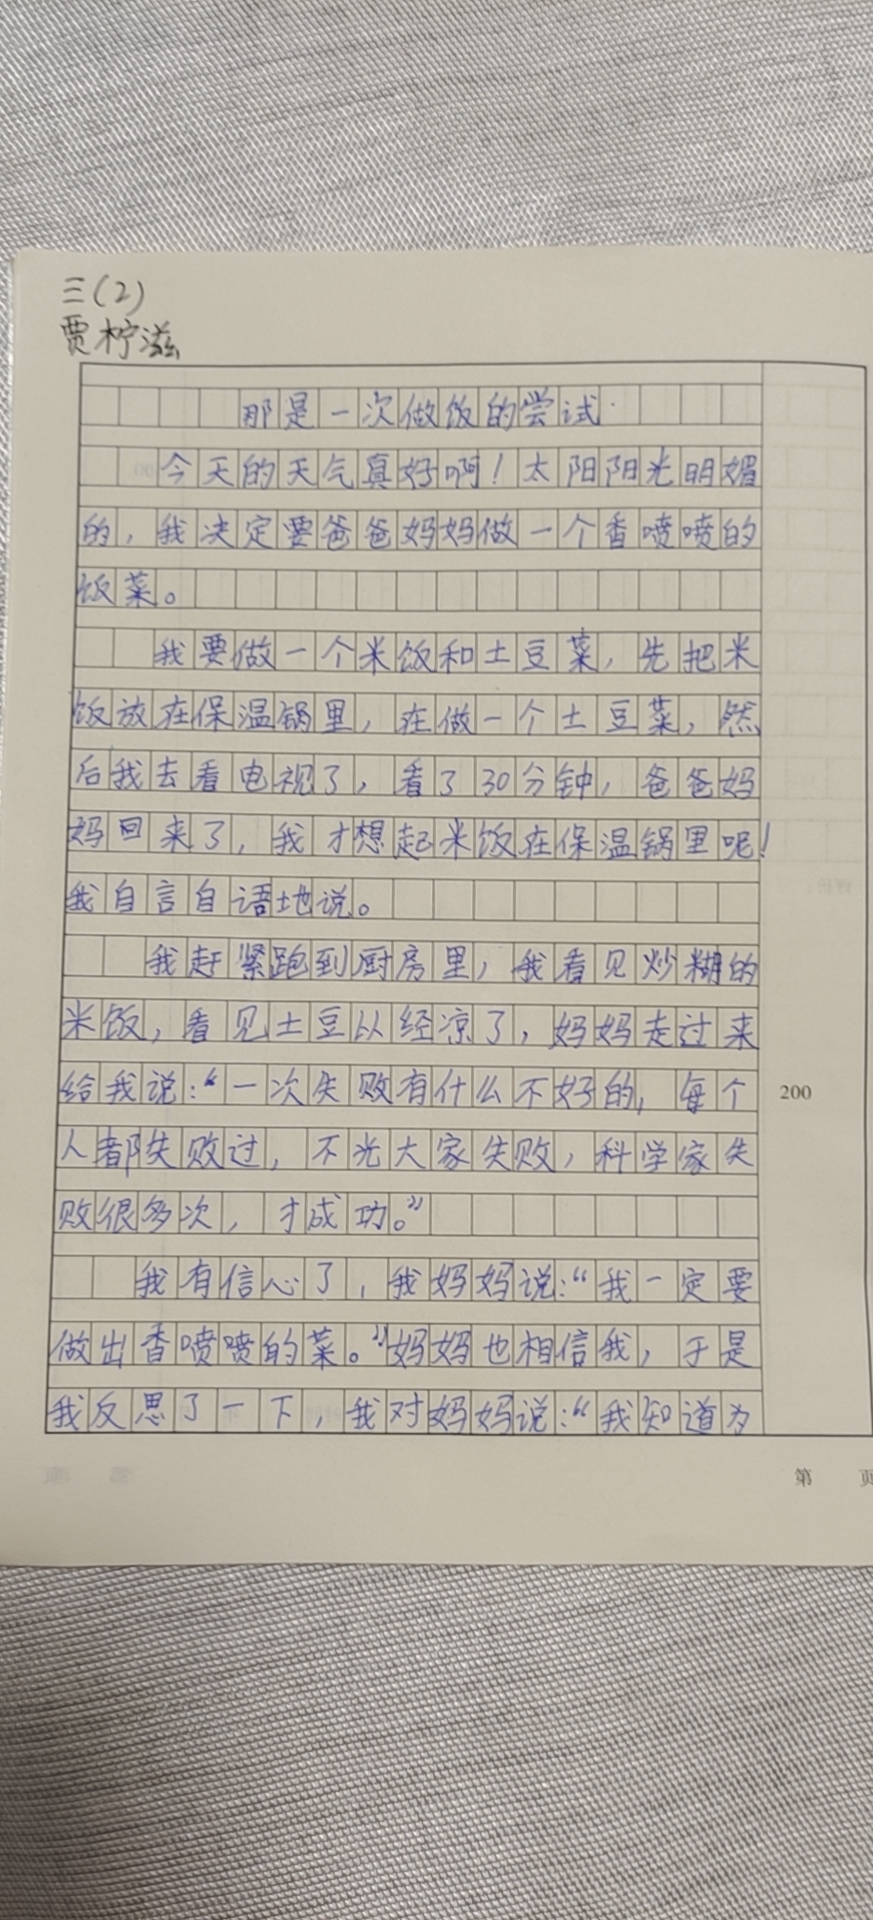 三(2)
贾柠滋
那是一次做饭的尝试
今天的天气真好啊！太阳阳光明媚
的，我决定要爸爸妈妈做一个香喷喷的
饭菜。
我要做一个米饭和土豆菜，先把米
饭放在保温锅里，在做一个土豆菜，然
后我去看电视了，看了30分钟，爸爸妈
妈回来了，我才想起米饭在保温锅里呢！
我自言自语地说。
我赶紧跑到厨房里，我看见炒糊的
米饭，看见土豆以经凉了，妈妈走过来
给我说：“一次失败有什么不好的，每个
人都失败过，不光大家失败，科学家失
败很多次，才成功。”
我有信心了，我妈妈说：“我一定要
做出香喷喷的菜。”妈妈也相信我，于是
我反思了一下，我对妈妈说：“我知道为
200
第 页